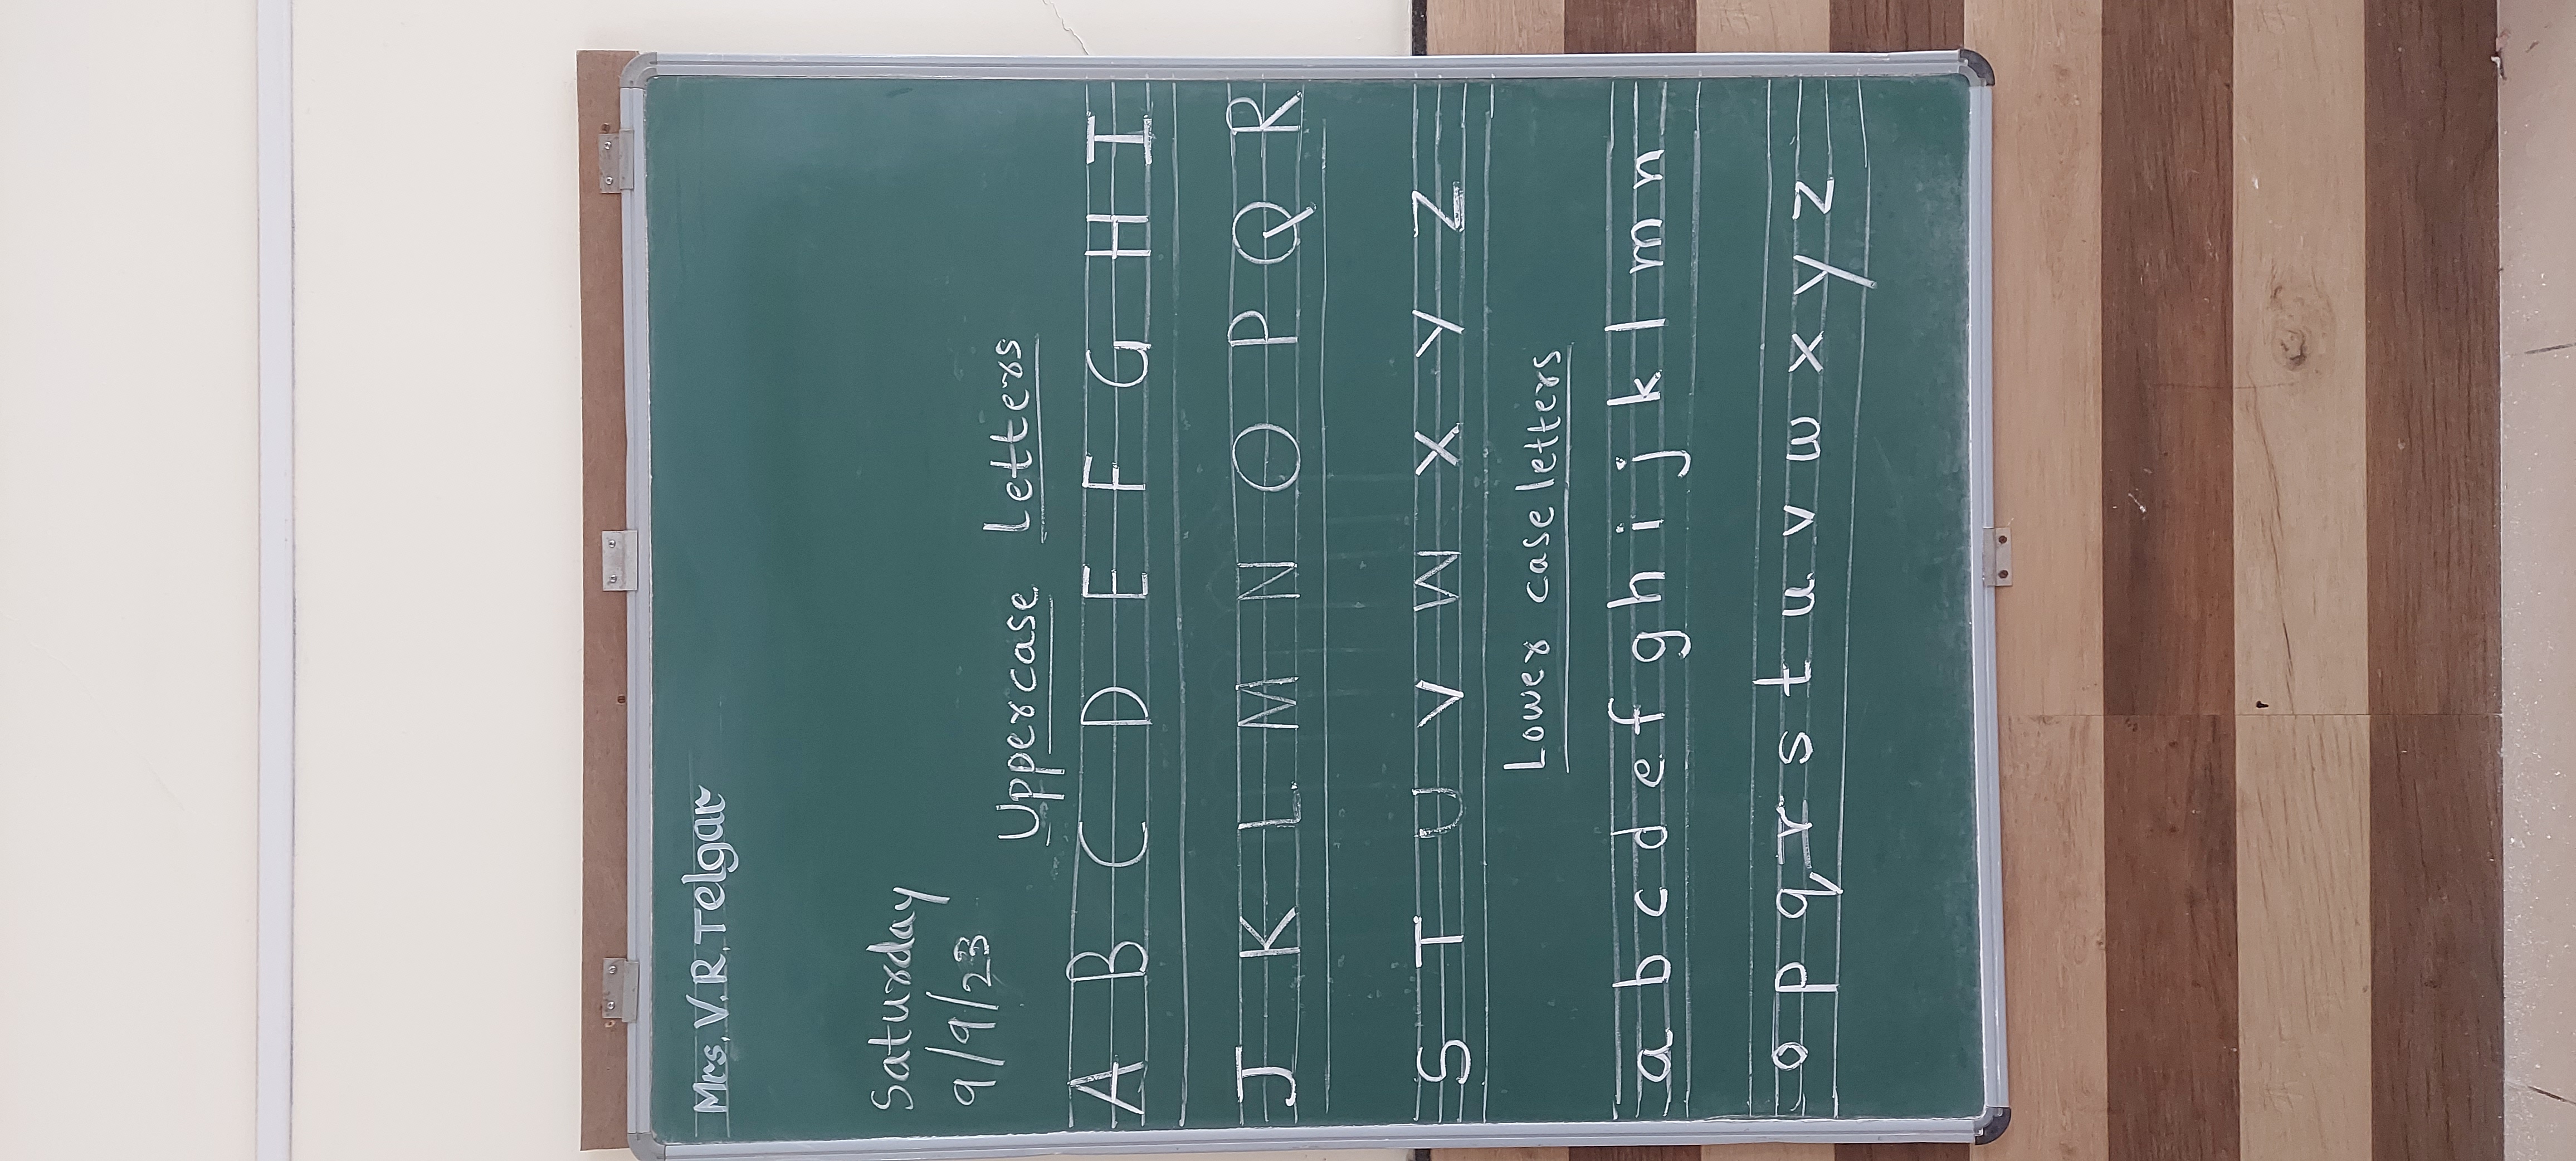 Mrs. V.R.Telgar
Saturday
9/9/23
Uppercase Letters
A B C D E F G H I
J K L M N O P Q R
S T U V W X Y Z
Lower case letters
a b c d e f g h i j k l m n
o p q r s t u v w x y z